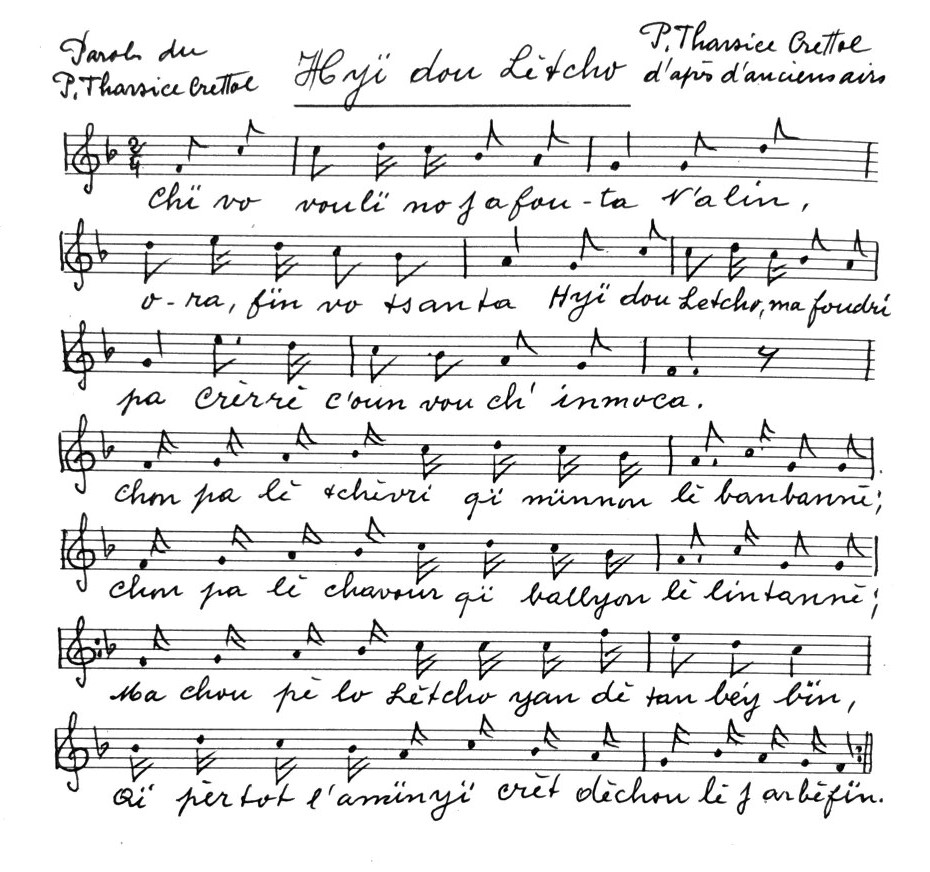 Parols du
P. Tharsice Crettol
Hyï dou Lètcho
P. Tharsice Crettol
d'après d'anciens airs
2/4
Chï vo voulï no j a fou-ta V'alin,
o-ra, fïn vo tsanta Hyï dou Letcho, ma foudri
pa crèrrè c'oun vou ch' inmoca.
Chon pa lè tchèvri qï mïnnon lè banbannè;
chon pa lè chavour qï ballyon lè lintannè;
Ma chou pè lo Lètcho yan dè tan béy bïn,
Qï pèrtot l'amïnyï crèt dèchou lè j arbèfïn.